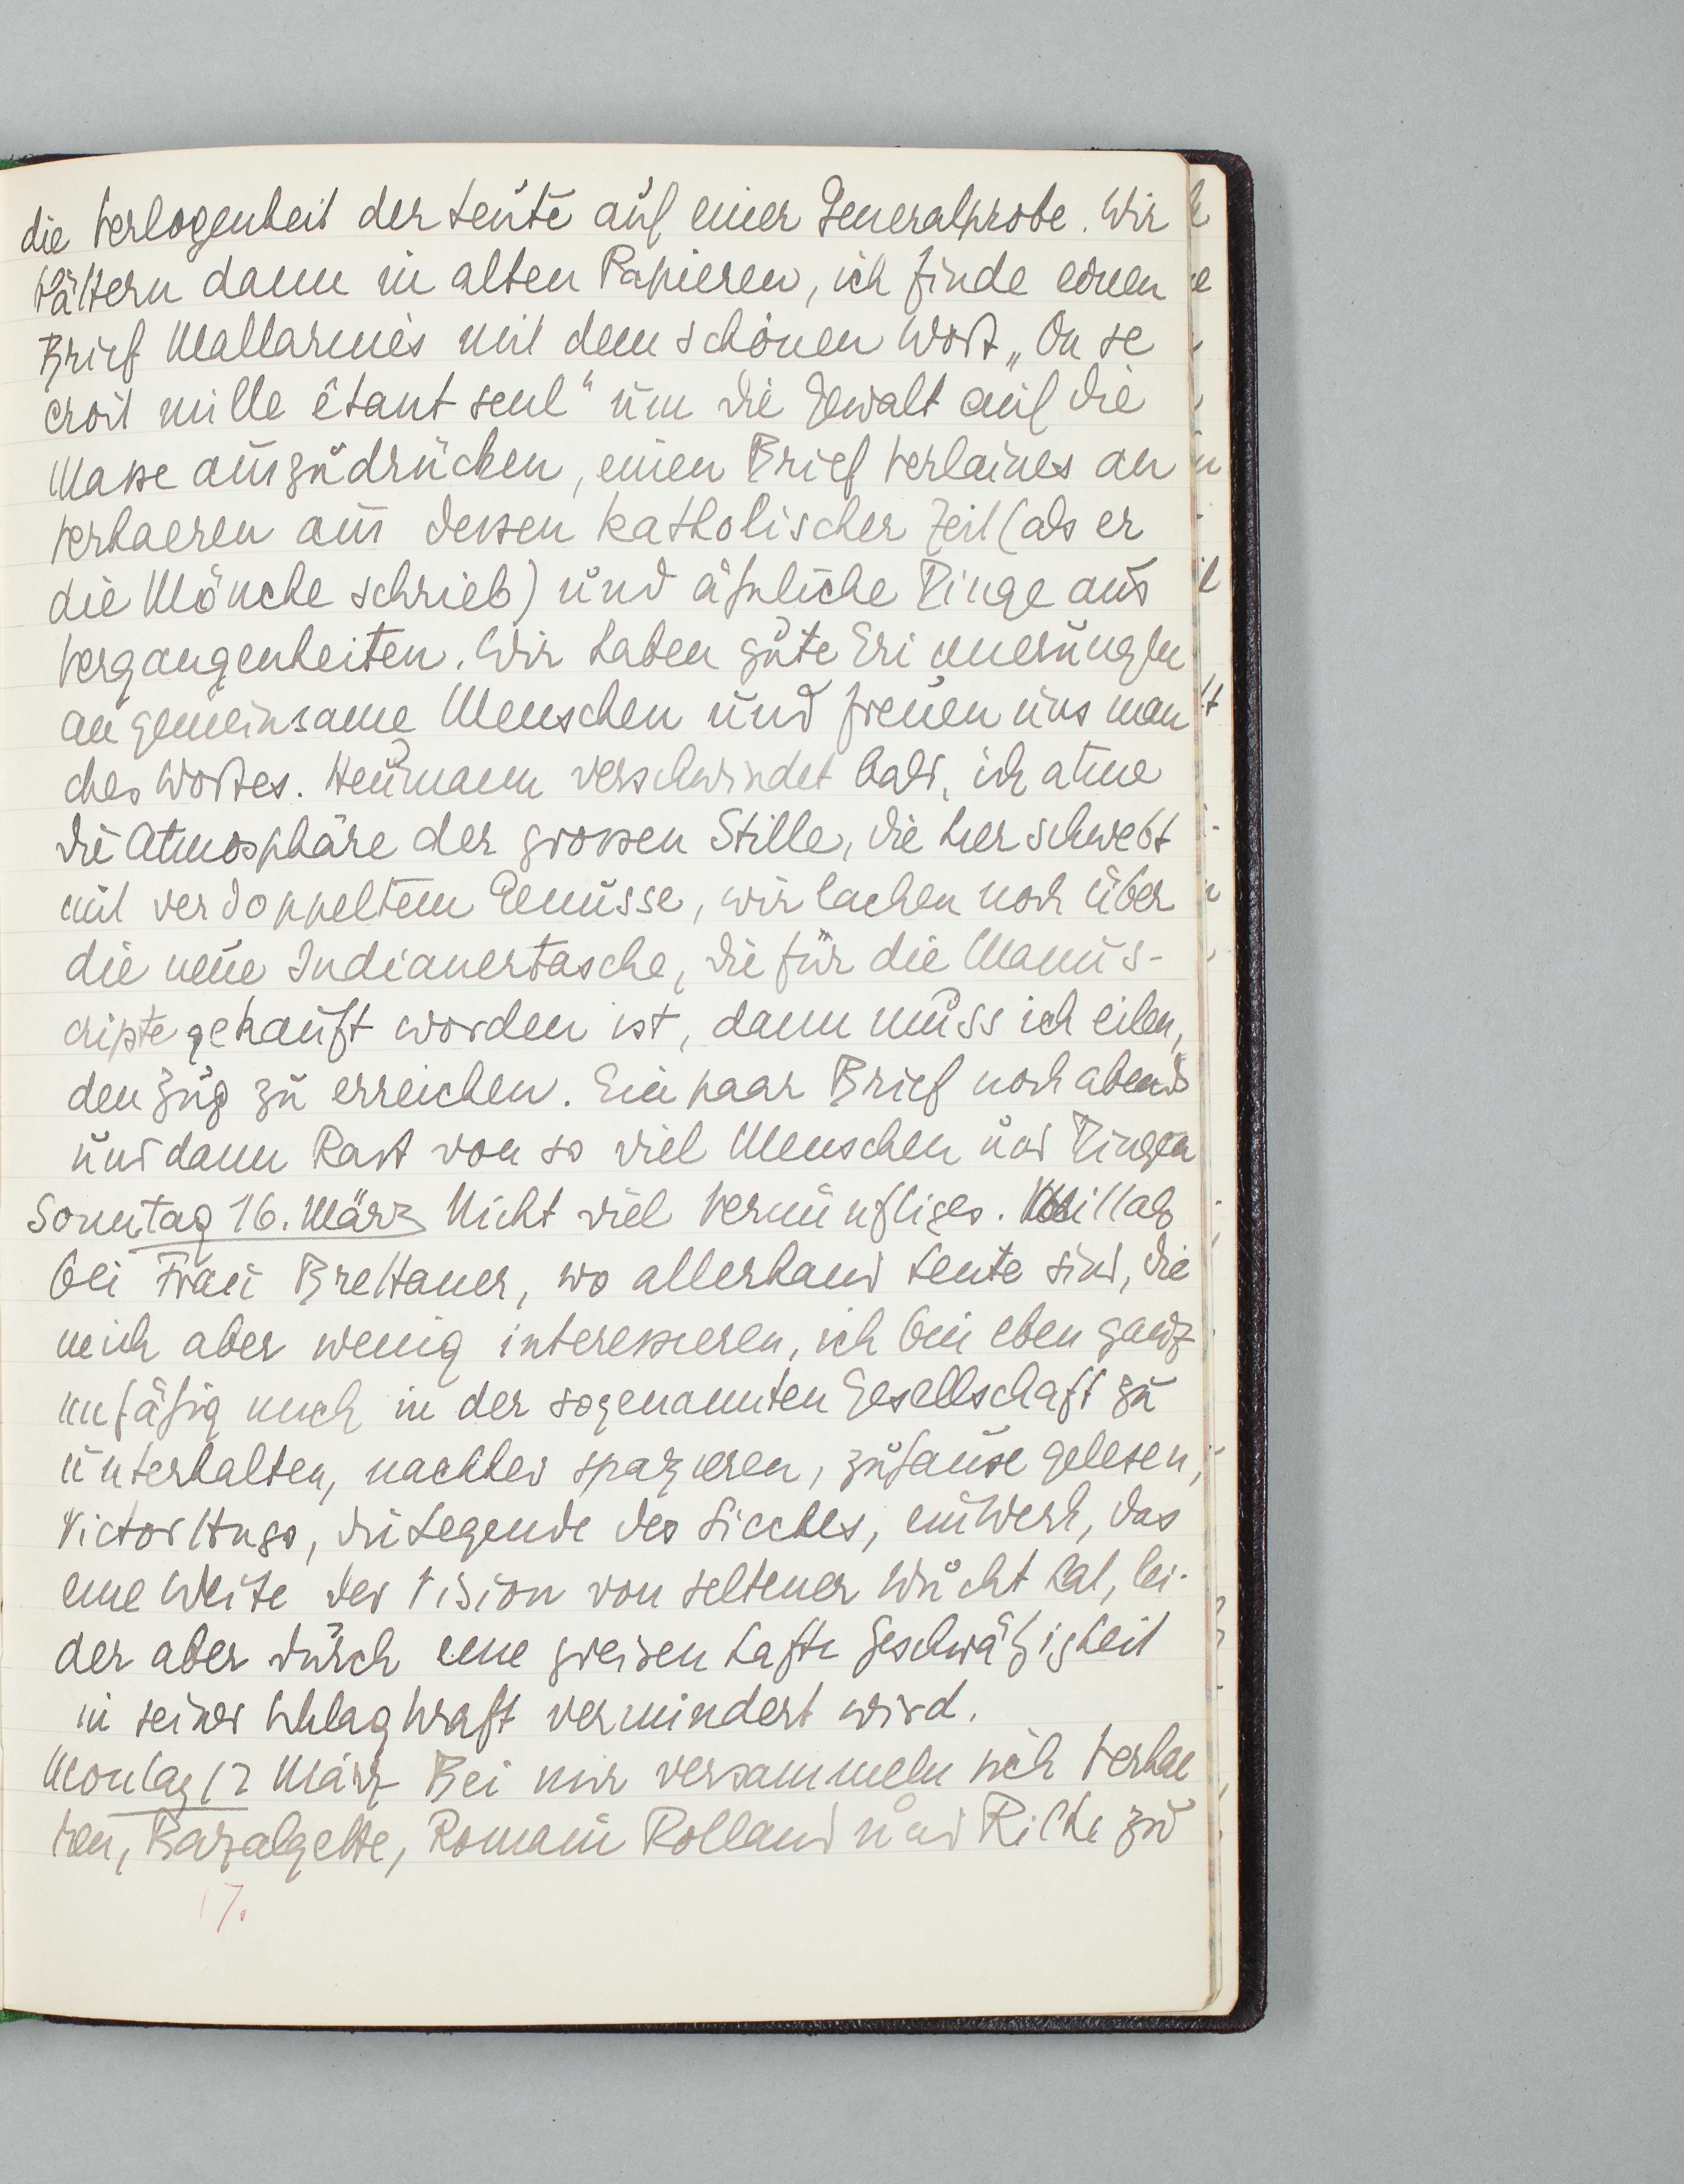 die Verlogenheit der Leute auf einer Generalprobe. Wir
blättern dann in alten Papieren, ich finde einen
Brief Mallarmés mit dem schönen Wort „On se
croit mille étant seul“ um die Gewalt auf die
Masse auszudrücken, einen Brief Verlaines an
Verhaeren aus dessen katholischer Zeit (als er
die Mönche schrieb) und ähnliche Dinge aus
Vergangenheiten. Wir haben gute Erinnerungen
an gemeinsame Menschen und freuen uns man
ches Wortes. Heumann verschwindet bald, ich atme
die Atmosphäre der grossen Stille, die hier schwebt
mit verdoppeltem Genusse, wir lachen noch über
die neue Indianertasche, die für die Manus-
cripte gekauft worden ist, dann muss ich eilen,
den Zug zu erreichen. Ein paar Brief noch abends
und dann Rast von so viel Menschen und Dingen
Sonntag 16. März Nicht viel Vernünftiges. Mittags
bei Frau Brettauer, wo allerhand Leute sind, die
mich aber wenig interessieren, ich bin eben ganz
unfähig mich in der sogenannten Gesellschaft zu
unterhalten, nachher spazieren, zuhause gelesen,
Victor Hugo, die Legende des Siècles, ein Werk, das
eine Weite der Vision von seltener Wucht hat, lei-
der aber durch eine greisenhafte Geschwätzigkeit
in seiner Schlagkraft vermindert wird.
Montag 17 März Bei mir versammeln sich Verhae
ren, Bazalgette, Romain Rolland und Rilke zu
17.